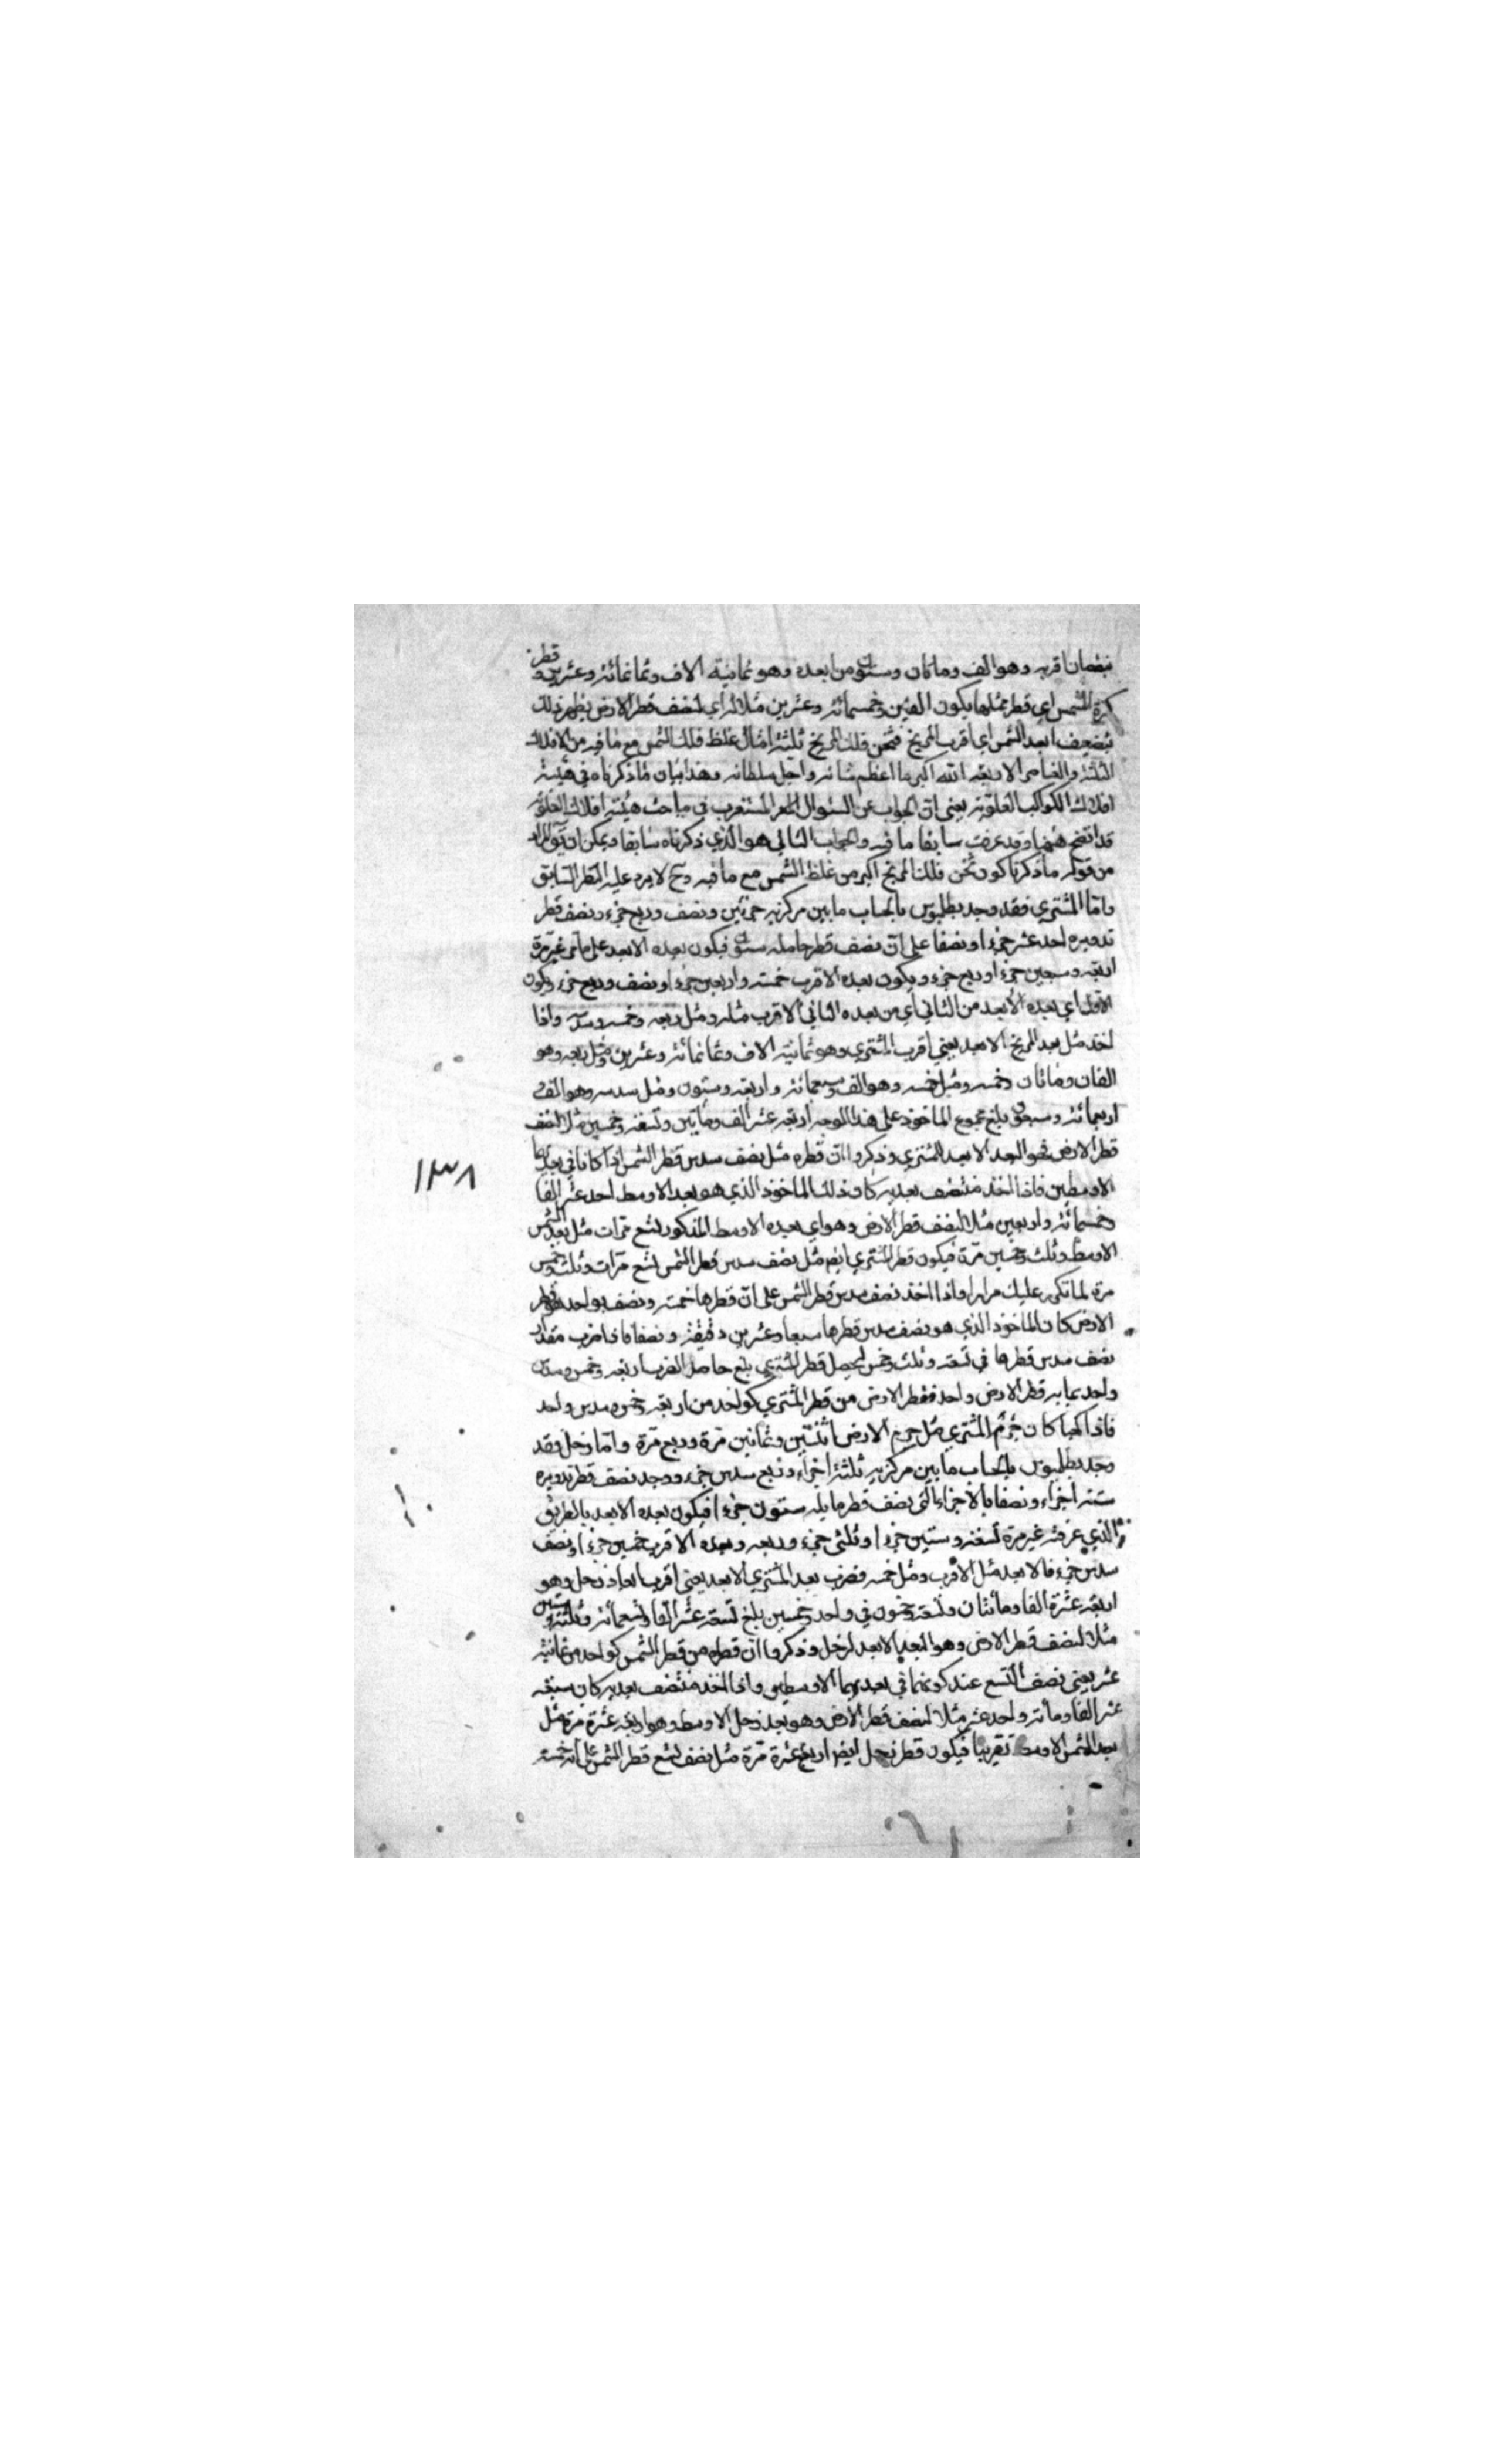 بنقصان اقربه وهو الف ومائتان وستون من ابعده وهو ثمانية الاف وثمانمائة وعشرين وقطر
كرة الشمس اي قطر ممثلها يكون الفين وخمسمائة وعشرين مثلا له اي لنصف قطر الارض يظهر ذلك
بتضعيف ابعد الشمس اي اقرب المريخ فثخن فلك المريخ ثلثة امثال غلظ فلك الشمس مع ما فيه من الافلاك
الثلثة والعناصر الاربعة الله اكبر ما اعظم شانه واجل سلطانه وهذا بيان ما ذكرناه في هيئة
افلاك الكواكب العلوية يعني ان الجواب عن السؤال المستغرب في مباحث هيئة افلاك العلوية
قد اتضح ههنا وقد عرفت سابقا ما فيه والجواب التالي هو الذي ذكرناه سابقا ويمكن ان يكون المراد
من قوله ما ذكرنا كون ثخن فلك المريخ اكبر من غلظ الشمس مع ما فيه وح لا يرد عليه النظر السابق
واما المشتري فقد وجد بطلميوس بالحساب ما بين مركزيه جزئين ونصف وربع جزء ونصف قطر
تدويره احد عشر جزءا ونصفا على ان نصف قطر حامله ستون فيكون بعده الابعد على ما مر غير مرة
اربعة وسبعين جزءا وربع جزء ويكون بعده الاقرب خمسة واربعين جزءا ونصف وربع جزء ويكون
الاول اي بعده الابعد من الثاني اي من بعده الثاني الاقرب مثله ومثل ربعه وخمسه وسدسه واذا
اخذ مثل بعد المريخ الابعد يعني اقرب المشتري وهو ثمانية الاف وثمانمائة وعشرين ومثل ربعه وهو
الفان ومائتان وخمسة ومثل خمسه وهو الف وسبعمائة واربعة وستون ومثل سدسه وهو الف و
اربعمائة وسبعون بلغ مجموع الماخوذ على هذا الوجه اربعة عشر الف ومايتين وتسعة وخمسين مثلا لنصف
قطر الارض فهو البعد الابعد للمشتري وذكروا ان قطره مثل نصف سدس قطر الشمس اذا كانا في بعديهما
الاوسطين فاذا اخذ منتصف بعديه كان ذلك الماخوذ الذي هو بعده الاوسط احد عشر الفا
وخمسمائة واربعين مثلا لنصف قطر الارض وهو اي بعده الاوسط المذكور تسع مرات مثل بعد الشمس
الاوسط وثلث وخمس مرة فيكون قطر المشتري ايضا مثل نصف سدس قطر الشمس تسع مرات وثلث وخمس
مرة لما تكرر عليك مرارا واذا اخذ نصف سدس قطر الشمس على ان قطرها خمسة ونصف بواحد هو قطر
الارض كان الماخوذ الذي هو نصف سدس قطرها سبعا وعشرين دقيقة ونصفا فاذا ضرب مقدار
نصف سدس قطرها في تسعة وثلث وخمس ليحصل قطر المشتري بلغ حاصل الضرب اربعة وخمس وسدس
واحد بما به قطر الارض واحد فقطر الارض من قطر المشتري كواحد من اربعة وخمس وسدس واحد
فاذا كعبا كان جرم المشتري مثل جرم الارض اثنتين وثمانين مرة وربع مرة واما زحل فقد
وجد بطلميوس بالحساب ما بين مركزيه ثلثة اجزاء وربع سدس جزء ووجد نصف قطر تدويره
ستة اجزاء ونصفا بالاجزاء التي نصف قطر حامله ستون جزءا فيكون بعده الابعد بالطريق
الذي عرفته غير مرة تسعة وستين جزءا وثلثي جزء وربعه وبعده الاقرب خمسين جزءا ونصف
سدس جزء فالابعد مثل الاقرب ومثل خمسه فضرب بعد المشتري الابعد يعني اقرب ابعاد زحل وهو
اربعة عشرة الفا ومائتان وتسعة وخمسون في واحد وخمس بلغ تسعة عشر الفا وتسعمائة وثلثة وستين
مثلا لنصف قطر الارض وهو البعد الابعد لزحل وذكروا ان قطره من قطر الشمس كواحد من ثمانية
عشر يعني نصف التسع عند كونهما في بعديهما الاوسطين واذا اخذ منتصف بعديه كان سبعة
عشر الفا ومائة واحد عشر مثلا لنصف قطر الارض وهو بعد زحل الاوسط وهو اربعة عشرة مرة مثل
بعد الشمس الاوسط تقريبا فيكون قطر زحل ايضا اربع عشرة مرة مثل نصف تسع قطر الشمس على انه خمسة
١٣٨